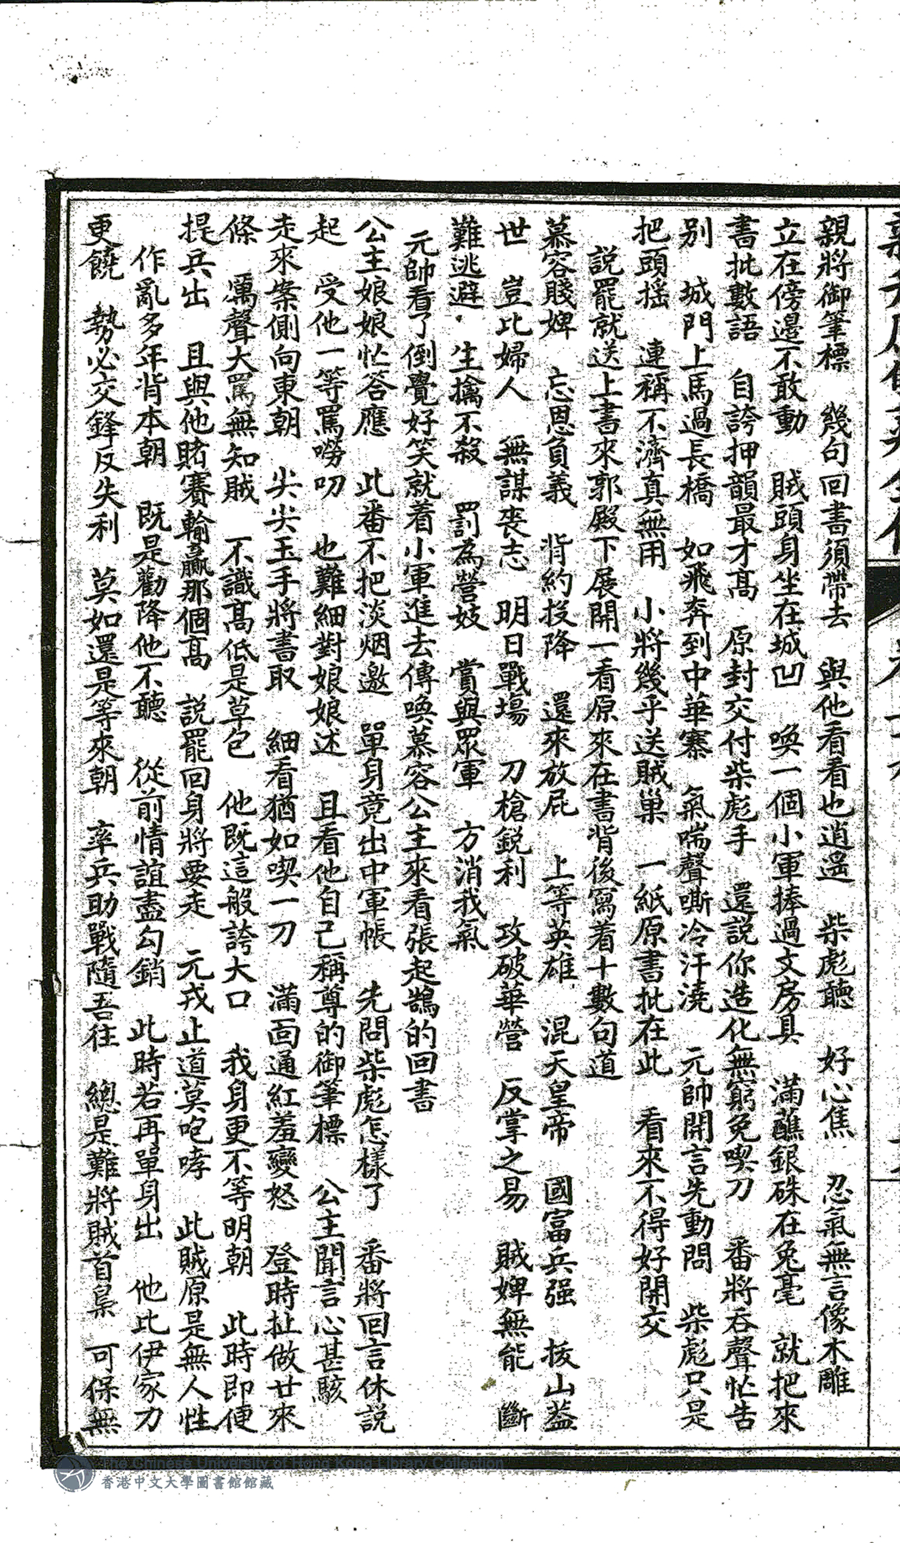 親將御筆標　幾句回書須帶去　與他看看也逍遥　柴彪聽　好心焦　忍氣無言像木雕
立在傍邊不敢動　賊頭身坐在城凹　喚一個小軍捧過文房具　滿蘸銀硃在兔毫　就把來
書批數語　自誇押韻最才高　原封交付柴彪手　還說你造化無窮免喫刀　番將吞聲忙告
别　城門上馬過長橋　如飛奔到中華寨　氣喘聲嘶冷汗澆　元帥開言先動問　柴彪只是
把頭摇　連稱不濟真無用　小將幾乎送賊巢　一紙原書批在此　看來不得好開交
説罷就送上書來郭殿下展開一看原來在書背後寫着十數句道
慕容賤婢　忘恩負義　背約投降　還來放屁　上等英雄　混天皇帝　國富兵强　拔山蓋
世　豈比婦人　無謀喪志　明日戰場　刀槍鋭利　攻破華營　反掌之易　賊婢無能　斷
難逃避．生擒不殺　罰為營妓　賞與眾軍　方消我氣
元帥看了倒覺好笑就着小軍進去傳喚慕容公主來看張起鵠的回書
公主娘娘忙答應　此番不把淡烟邀　單身竟出中軍帳　先問柴彪怎樣了　番將回言休説
起　受他一等罵嘮叨　也難細對娘娘述　且看他自己稱尊的御筆標　公主聞言心甚駭
走來案側向東朝　尖尖玉手將書取　細看猶如喫一刀　滿面通紅羞變怒　登時扯做廿來
條　厲聲大罵無知賊　不識高低是草包　他既這般誇大口　我身更不等明朝　此時即便
提兵出　且與他賭賽輸贏那個高　説罷回身將要走　元戎止道莫咆哮　此賊原是無人性
作亂多年背本朝　既是勸降他不聽　從前情誼盡勾銷　此時若再單身出　他比伊家刀
更饒　勢必交鋒反失利　莫如還是等來朝　率兵助戰隨吾往　總是難將賊首梟　可保無
The Chinese University of Hong Kong Library Collection
香港中文大學圖書館館藏